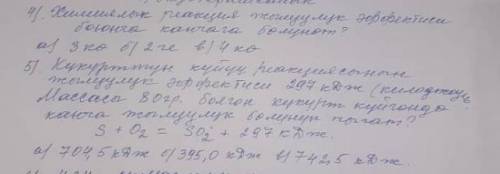 4) Химиялык реакция жылуулук эффектиси
боюнча канчага болунот?
а) 3 кө б) 2 ге в) 4 кө
5) Кукурттун куйуу реакциясынын
жылуулук эффектиси 297 кДж (килоджоуль
Массасы 80гр. болгон кукурт куйгондо
канча жылуулук болунуп чыгат?
S + O2 = SO2 + 297 кДж.
а) 704,5 кДж б) 395,0 кДж в) 742,5 кДж.